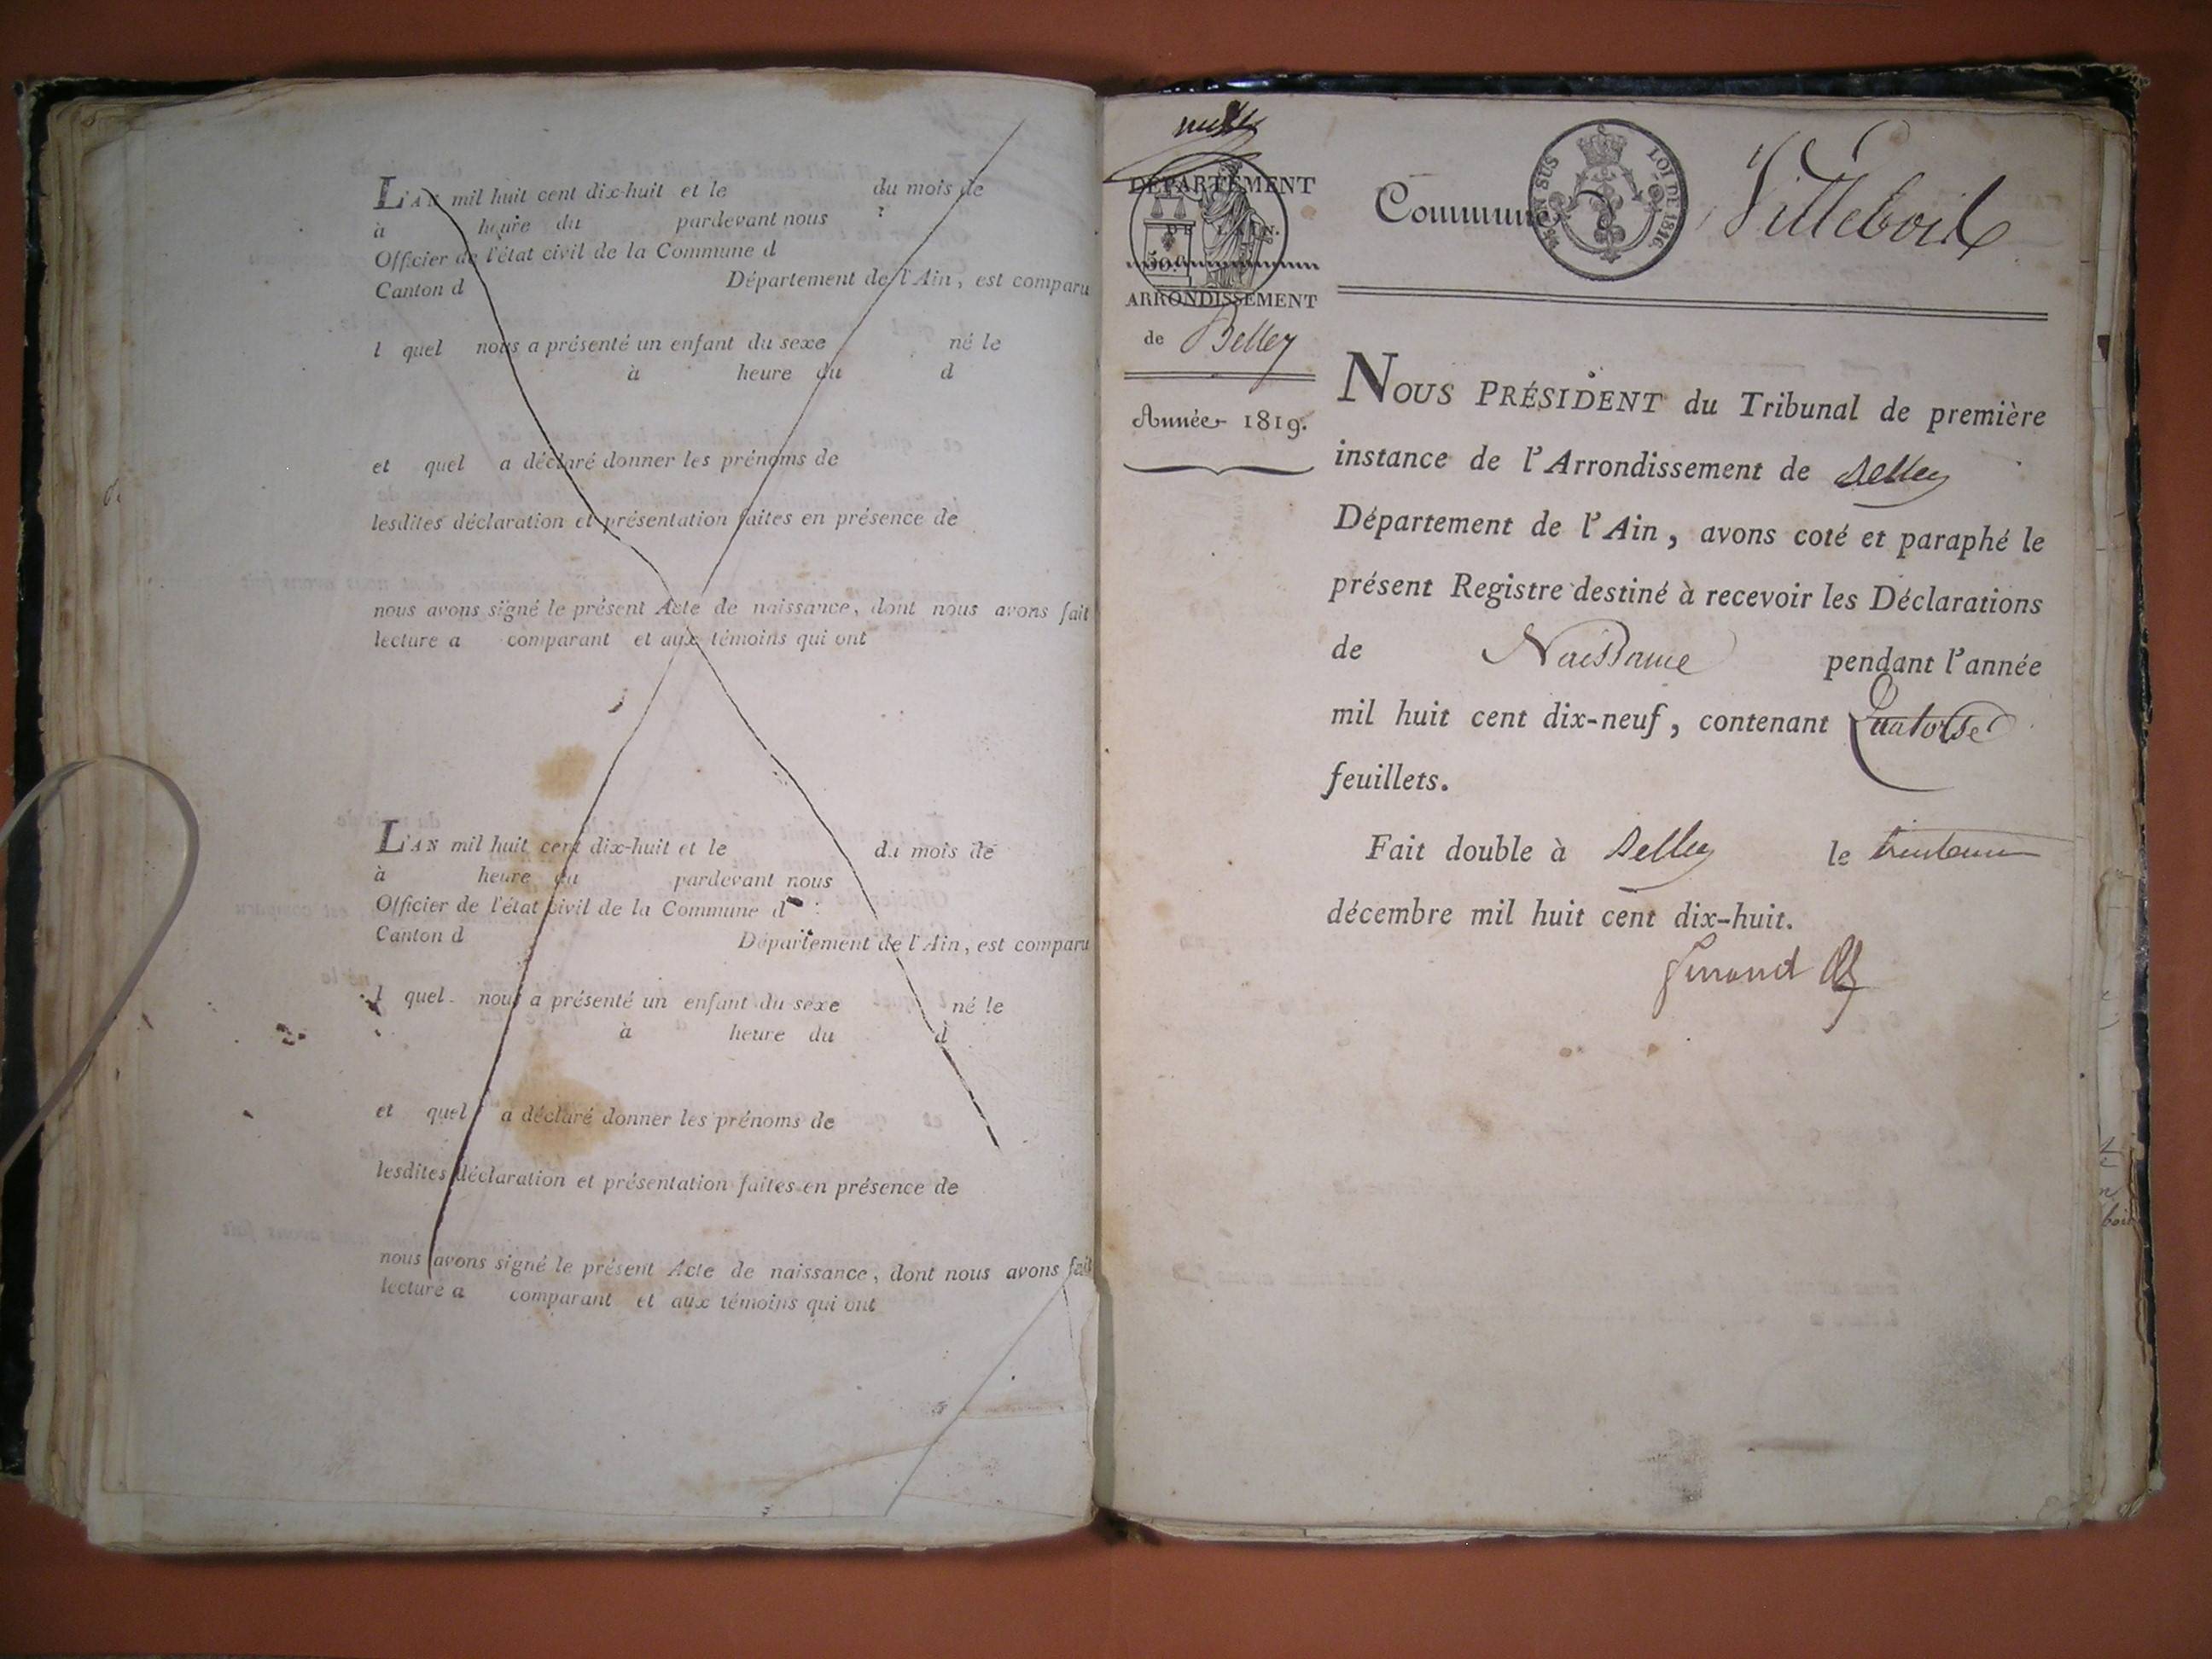 L'AN mil huit cent dix-huit et le du mois de
à heure du pardevant nous
Officier de l'état civil de la Commune d
Canton d Département de l'Ain, est comparu
l quel nous a présenté un enfant du sexe né le
à heure du d
et quel a déclaré donner les prénoms de
lesdites déclaration et présentation faites en présence de
nous avons signé le présent Acte de naissance, dont nous avons fait
lecture a comparant et aux témoins qui ont
L'AN mil huit cent dix-huit et le du mois de
à heure du pardevant nous
Officier de l'état civil de la Commune d
Canton d Département de l'Ain, est comparu
l quel nous a présenté un enfant du sexe né le
à heure du d
et quel a déclaré donner les prénoms de
lesdites déclaration et présentation faites en présence de
nous avons signé le présent Acte de naissance, dont nous avons fait
lecture a comparant et aux témoins qui ont
DÉPARTEMENT
DE L'AIN.
50 c
ARRONDISSEMENT
de Belley
Année 1819.
Commune d Villebois
LOI DE 1816.
NOUS PRÉSIDENT du Tribunal de première
instance de l'Arrondissement de Belley
Département de l'Ain, avons coté et paraphé le
présent Registre destiné à recevoir les Déclarations
de Naissance pendant l'année
mil huit cent dix-neuf, contenant Quatorse
feuillets.
Fait double à Belley le trente un
décembre mil huit cent dix-huit.